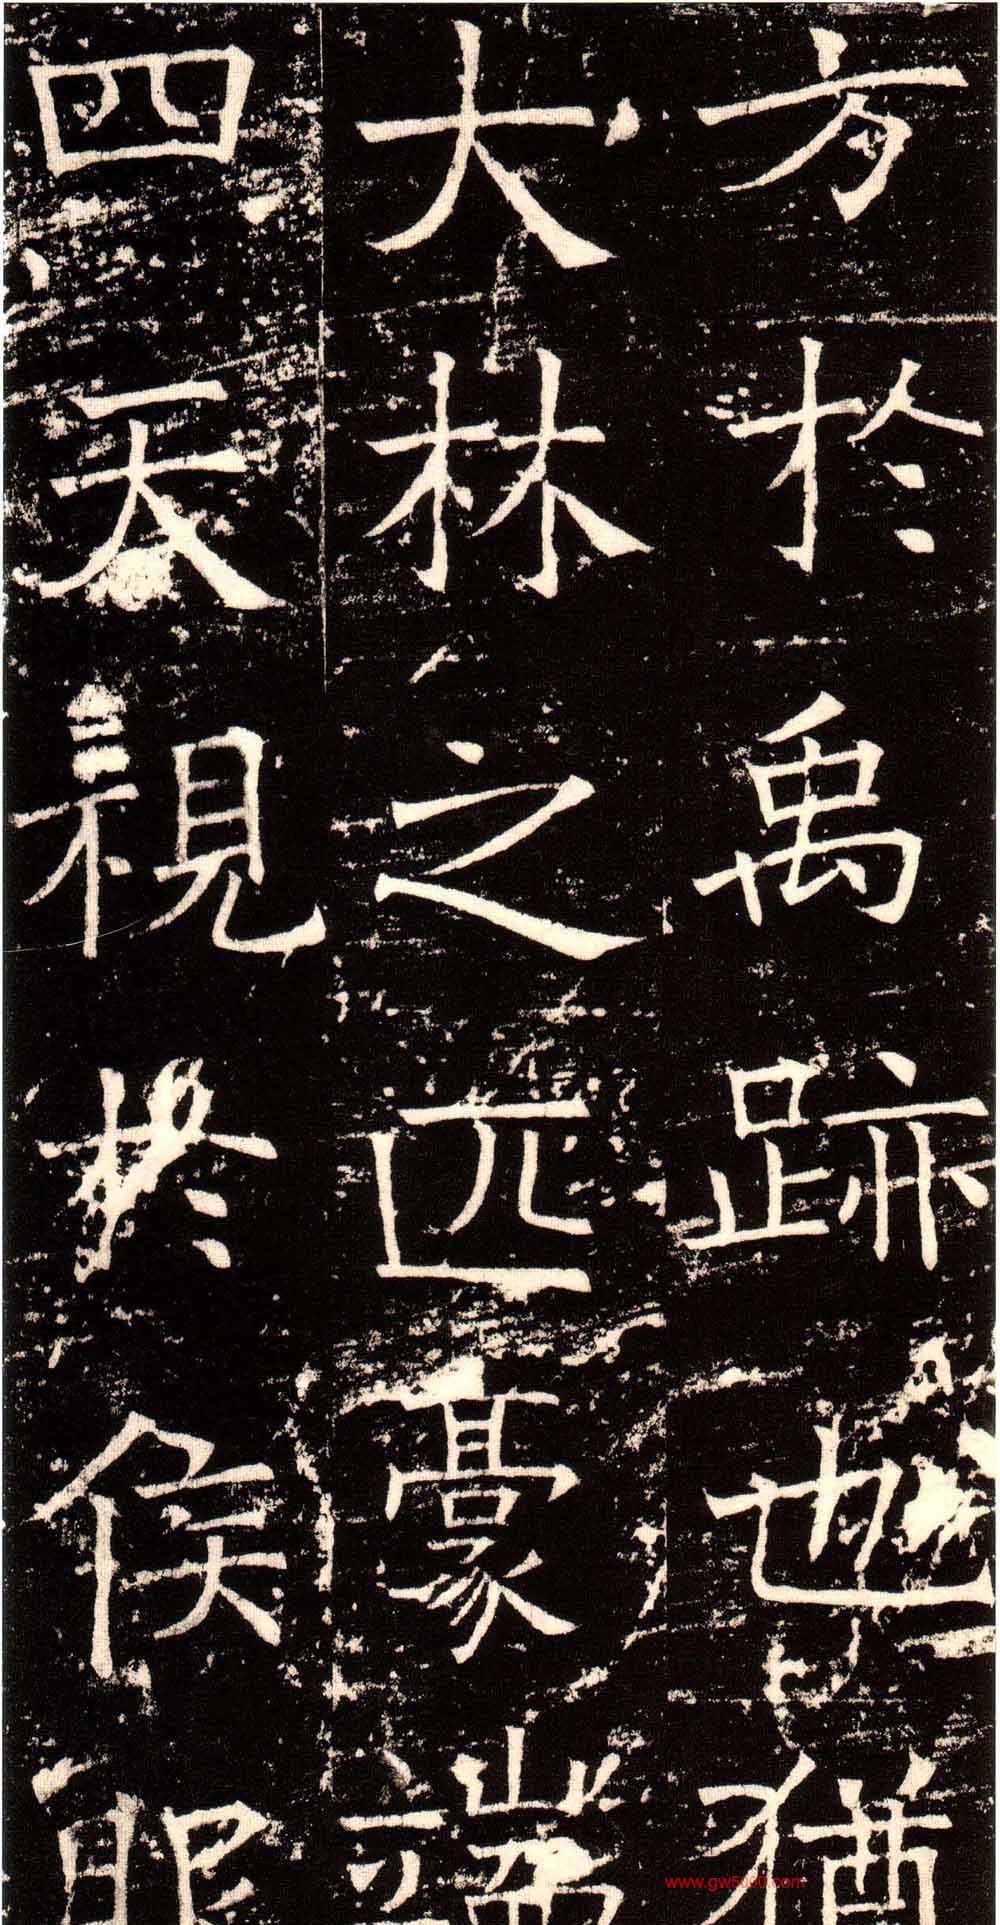 方於禹跡也猶
大林之匹豪端
四天視於侯服
www.gw5090.com